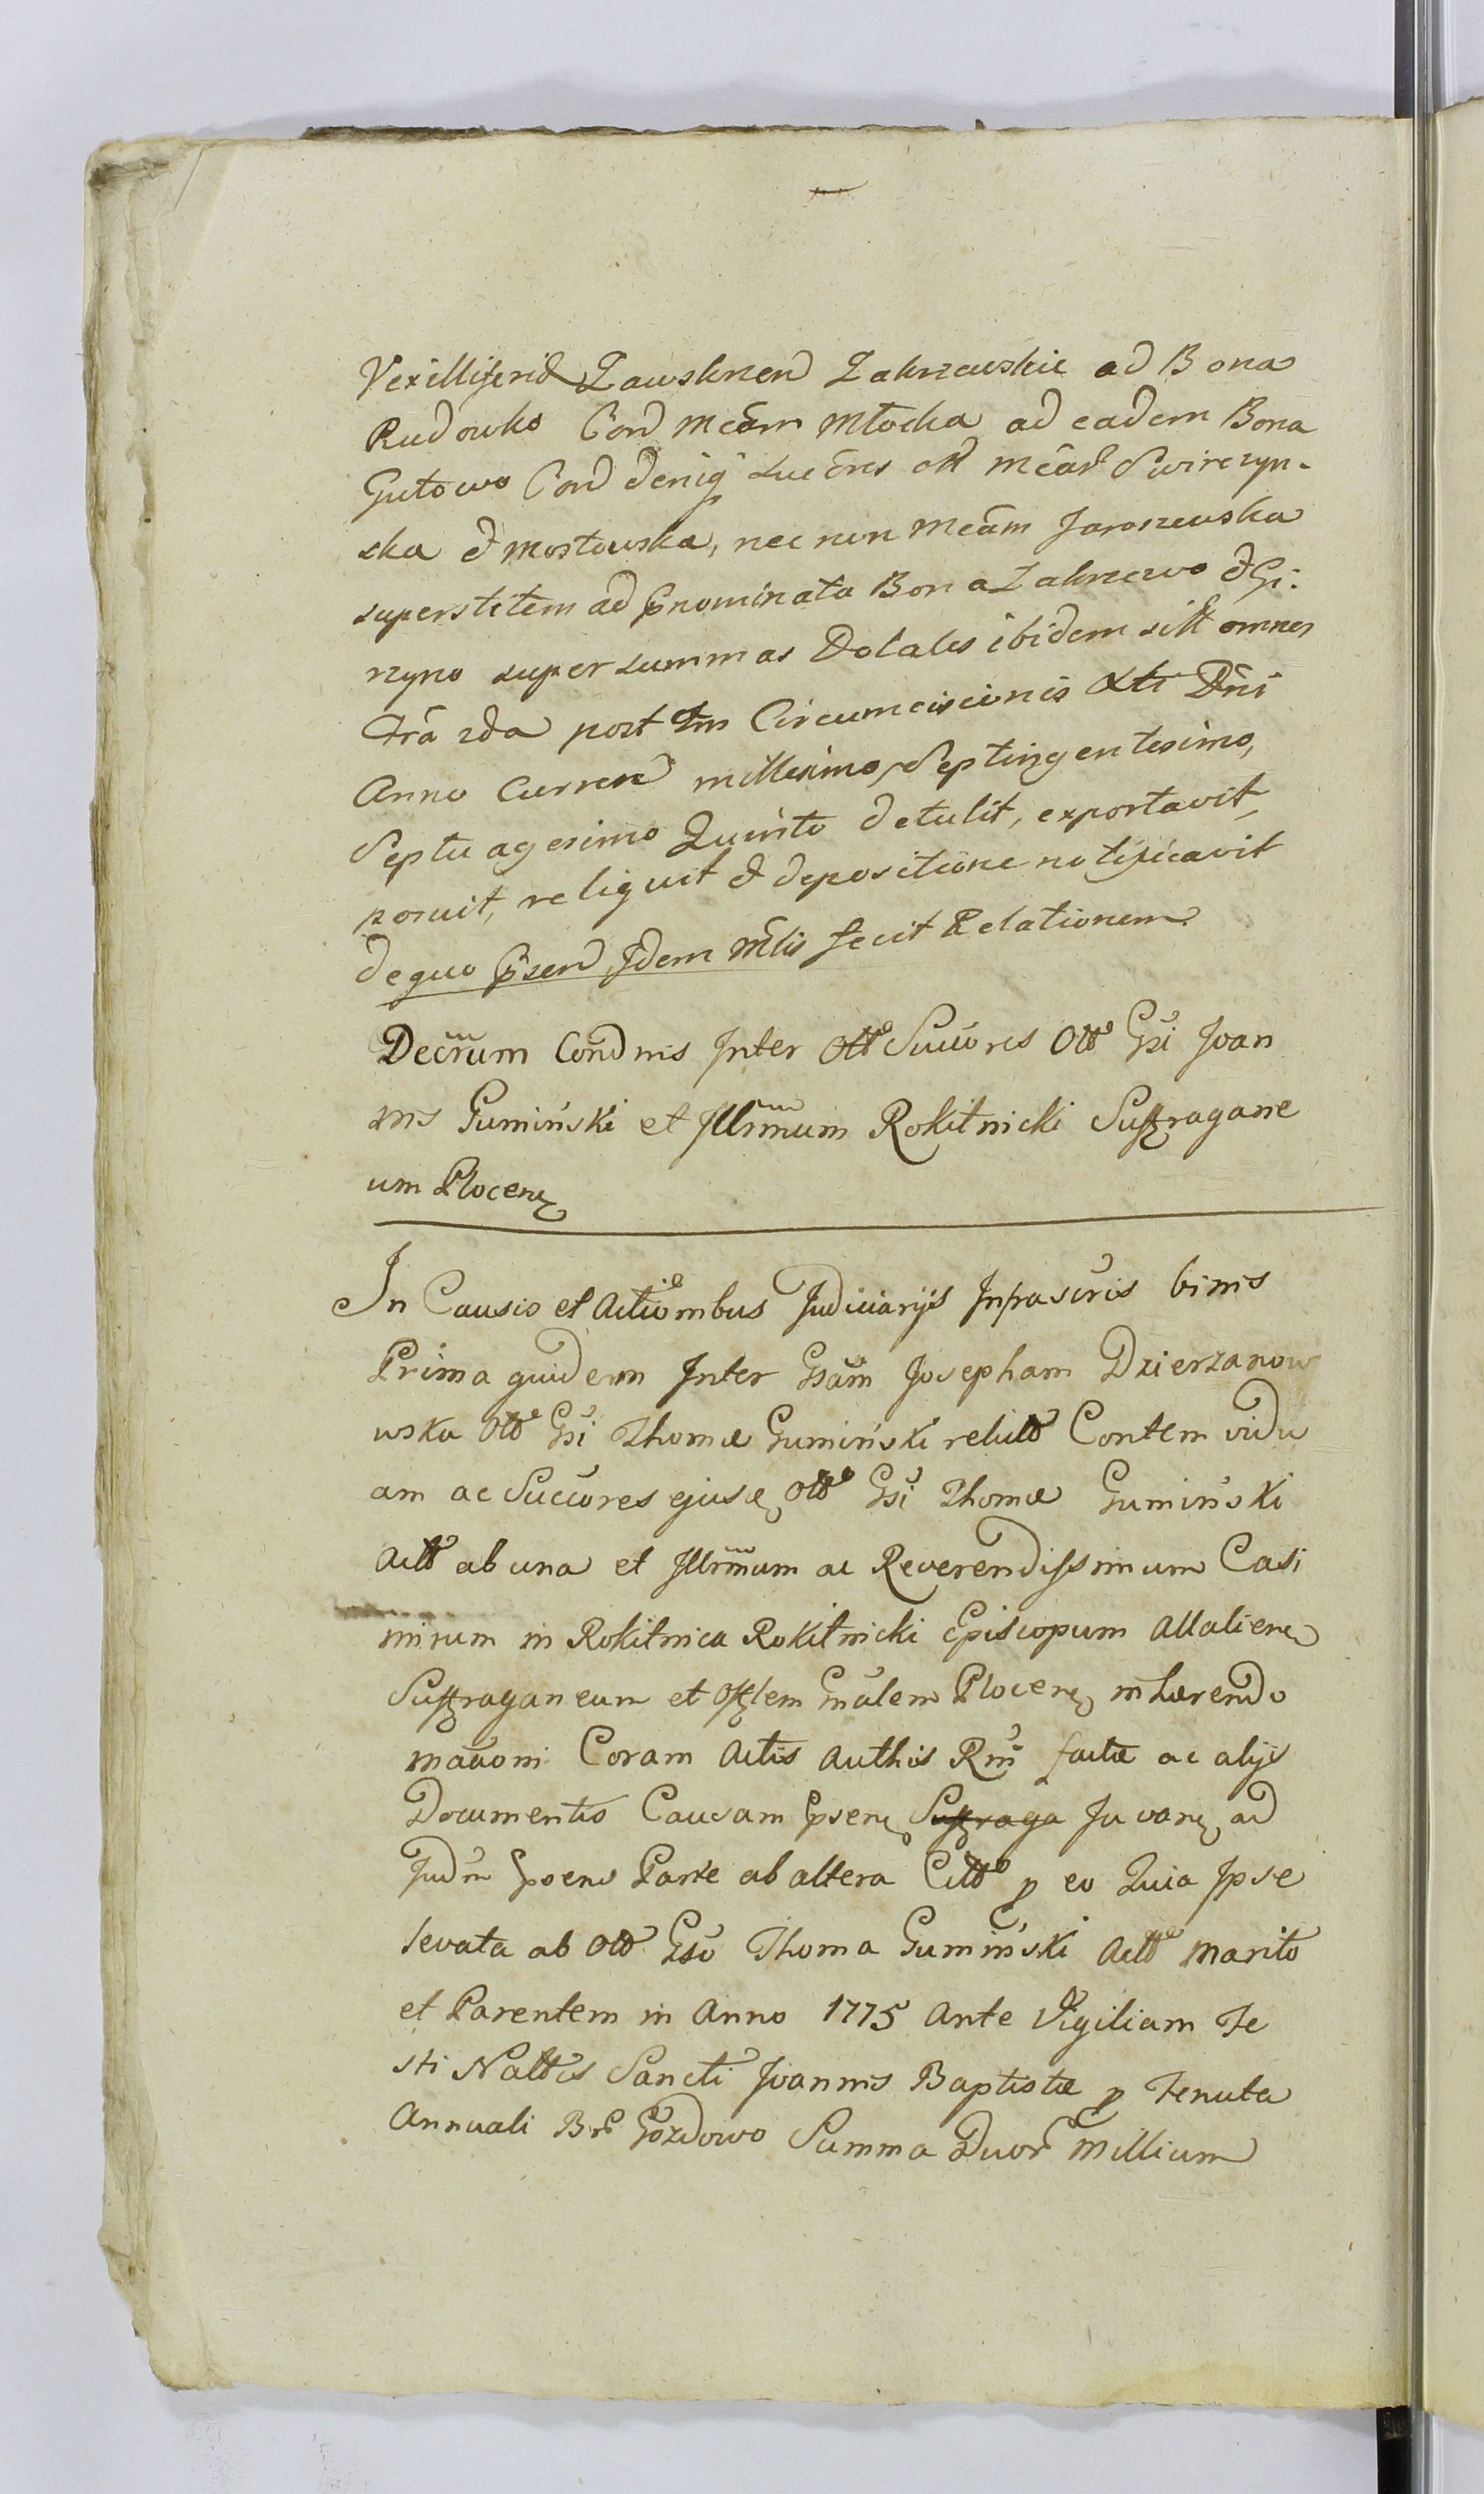 Vexilliferid Zawskrzen Zakrzewskie ad Bona
Rudowko Cond Mcam Młocka ad eadem Bona
Gutowo Cond deniq succres olł Mcar Swirczyn-
ska et Mostowska, nec non Mcam Jaroszewska
superstitem ad pnominata Bona Zakrzewo et Gi-
zyno super summas Dotales ibidem sitt omnes
fra 2da post fm Circumcisionis Xti Dni
Anno Curren millesimo, Septingentesimo,
Septuagesimo Quinto detulit, exportavit,
posuit, reliquit et depositione notificavit
dequo Psend Idem Mlis fecit Relationem
Decrum Condnis Inter Olł Succores Olł Gsi Joan
nis Gumiński et Illrmum Rokitnicki Suffragane
um Plocen
In Causis et Actionibus Judiciarijs Infrascris binis
Prima quidem Inter Gsam Josepham Dzierzanow
wska Olł Gsi Thomæ Gumiński relict Contem vidu
am ac Succores ejusd Olł Gsi Thomæ Gumiński
Act ab una et Illrmum ac Reverendissimum Casi
mirum in Rokitnica Rokitnicki Episcopum Allalien
Suffraganeum et Offlem Gnalem Plocen inhærendo
maaoni Coram Actis Authis Rni factæ ac alijs
Documentis Causam Psen Suffraga Juvan ad
Judm Poens Parte ab altera Citt p eo Quia Ipse
levata ab Olł Gso Thoma Gumiński Act Marito
et Parentem in Anno 1775 Ante Vigiliam Fe
sti Nattis Sancti Joannis Baptistæ p Tenuta
Annuali Br Gozdowo Summa Duor Millium